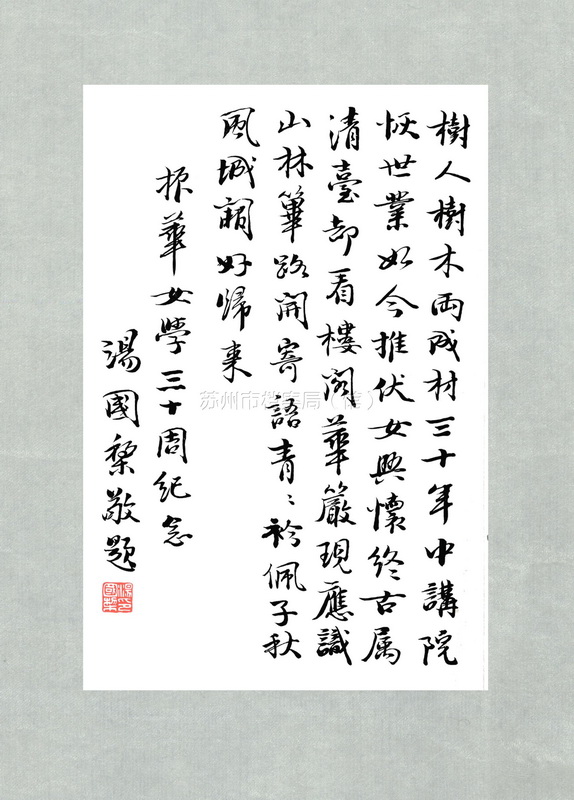 樹人樹木両成材三十年中講院
恢世業如今推伏女興懷終古属
清臺却看樓閣華嚴現應識
山林篳路開寄語青〻衿佩子秋
風城闕好歸來
振華女學三十周紀念
湯國棃敬題
苏州市档案局（馆）